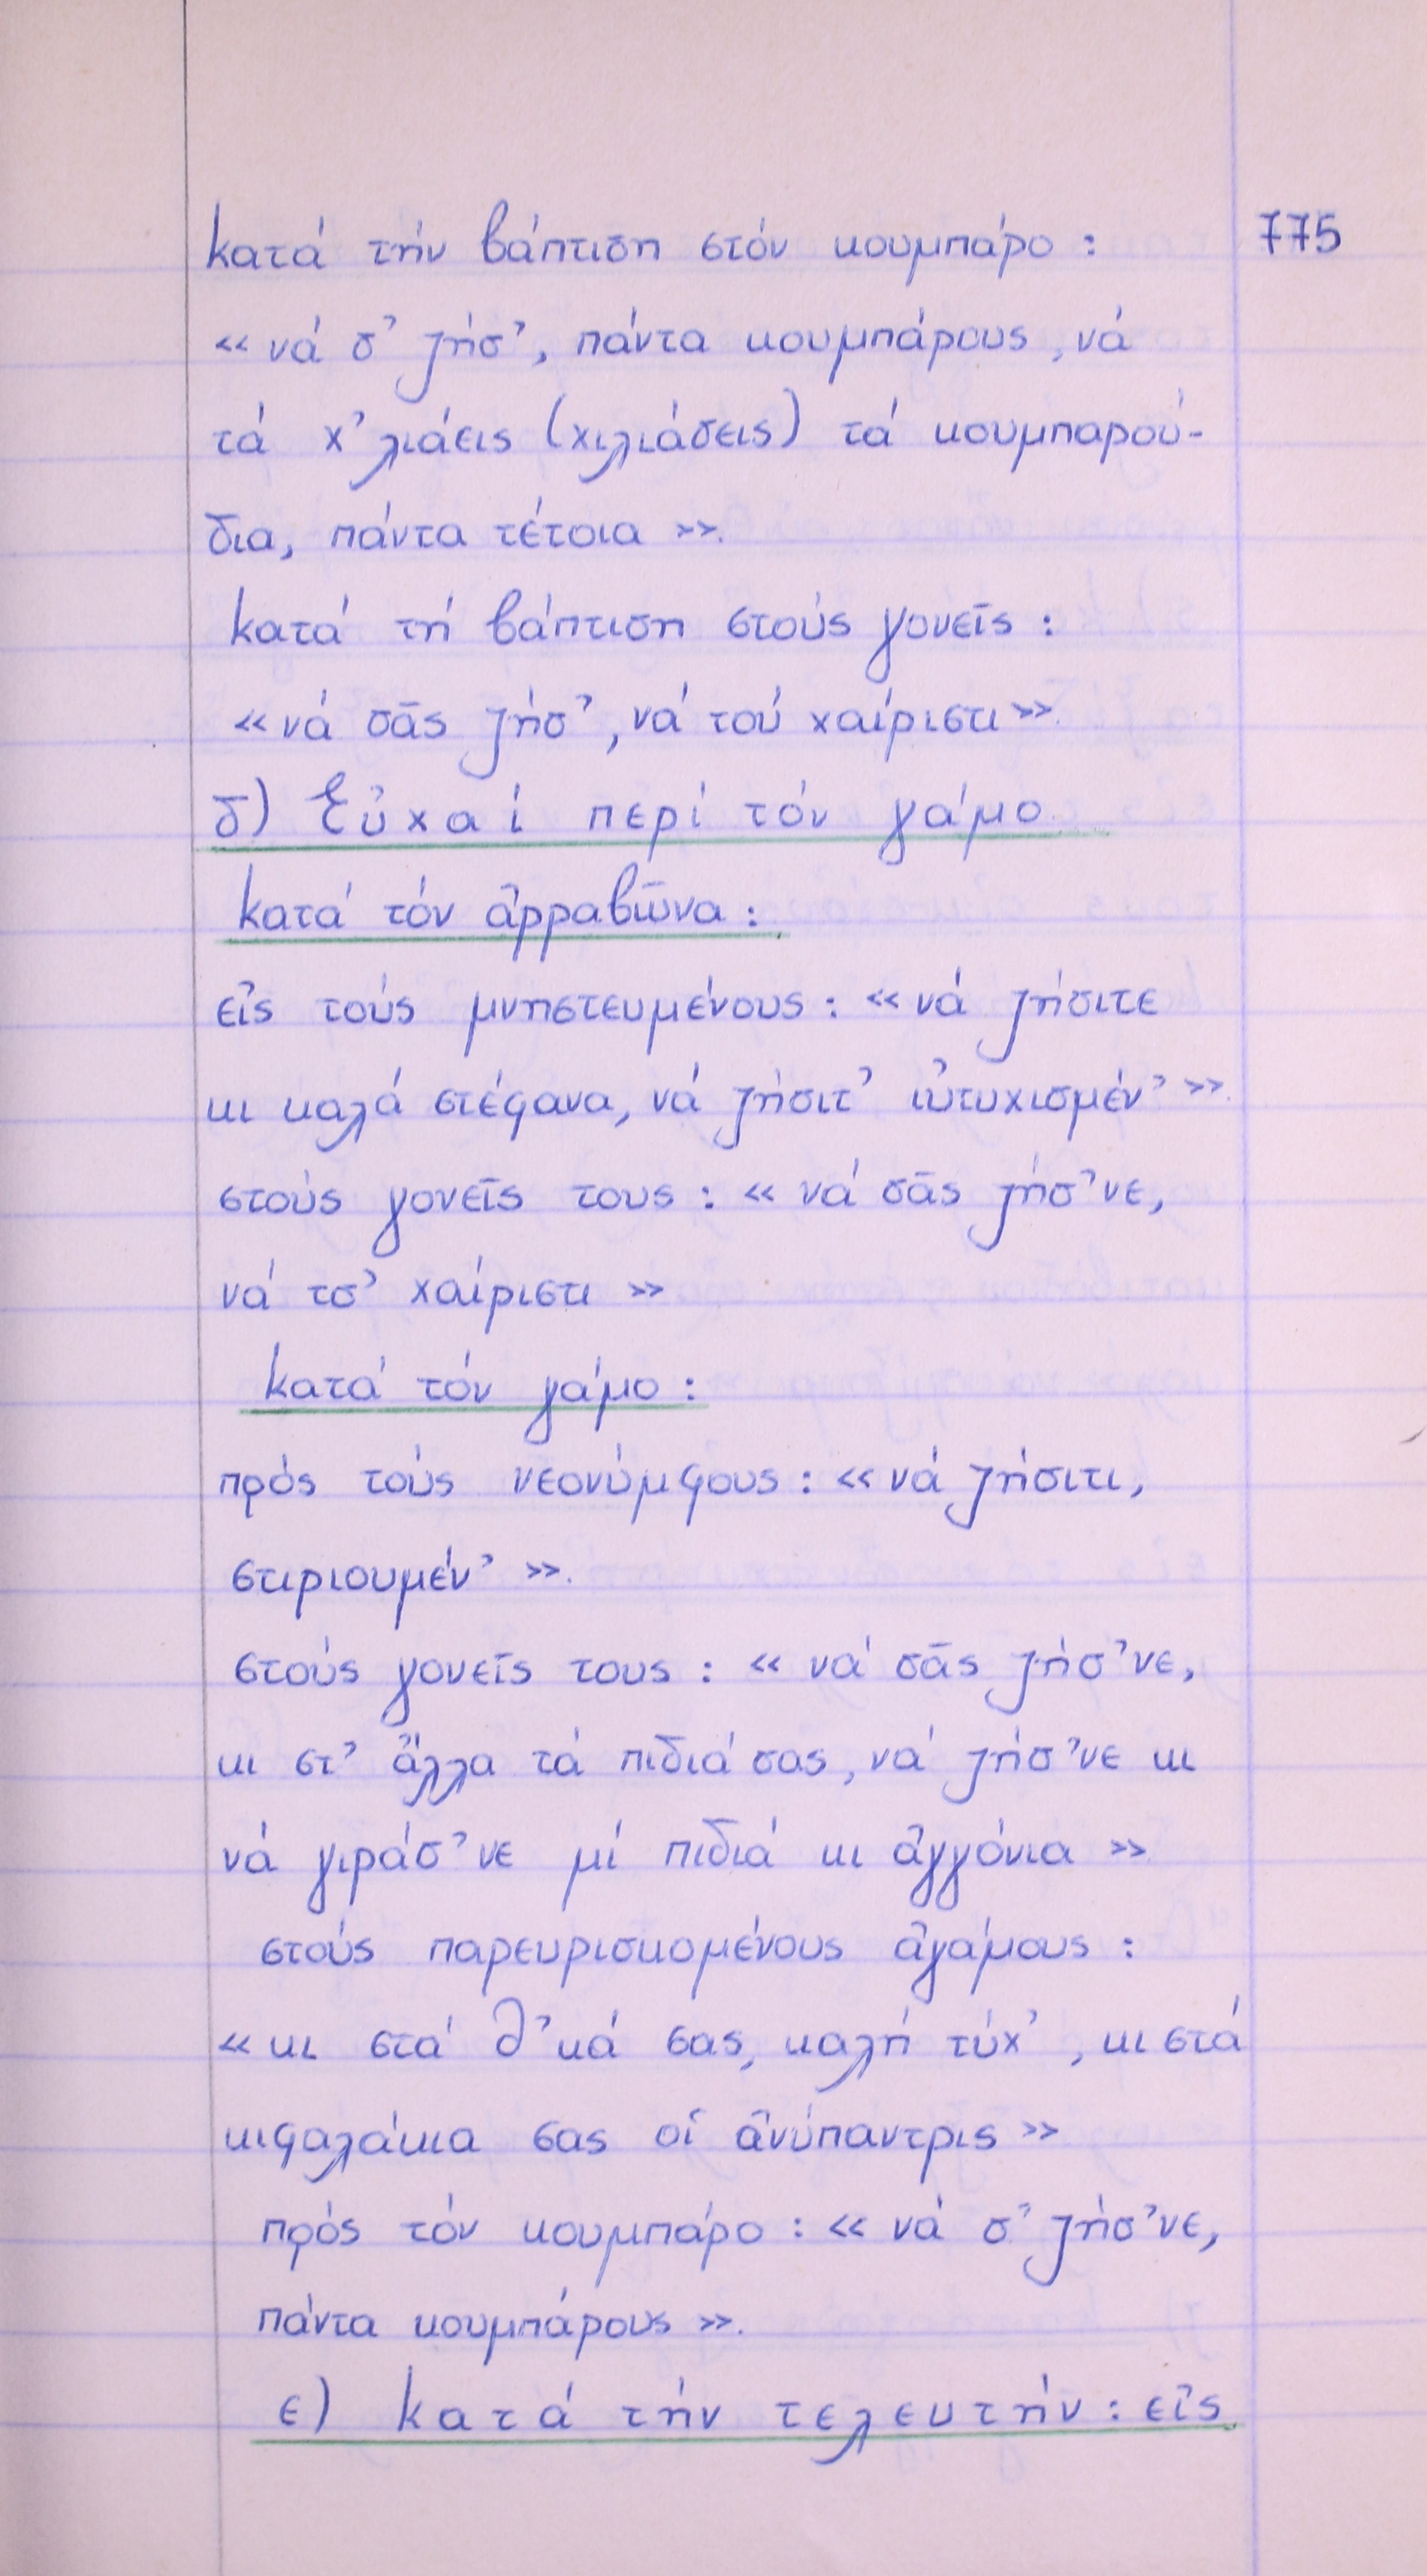 775
κατά τήν βάπτιση στόν κουμπάρο :
« νά σ' ζήσ', πάντα κουμπάρους, νά
τά χ'λιάεις (χιλιάσεις) τά κουμπαρού-
δια, πάντα τέτοια ».
κατά τή βάπτιση στούς γονεῖς :
« νά σᾶς ζήσ', νά τού χαίριστι ».
δ) Εὐχαί περί τόν γάμο.
κατά τόν ἀρραβῶνα :
εἰς τούς μνηστευμένους : « νά ζήσιτε
κι καλά στέφανα, νά ζήσιτ' ιὐτυχισμέν' ».
στούς γονεῖς τους : « νά σᾶς ζήσ'νε,
νά τσ' χαίριστι »
κατά τόν γάμο :
πρός τούς νεονύμφους : « νά ζήσιτι,
στιριουμέν' ».
στούς γονεῖς τους : « νά σᾶς ζήσ'νε,
κι στ' ἄλλα τά πιδιά σας, νά ζήσ'νε κι
νά γιράσ'νε μί πιδιά κι ἀγγόνια »
στούς παρευρισκομένους ἀγάμους :
« κι στά θ'κά σας, καλή τύχ', κι στά
κιφαλάκια σας οἱ ἀνύπαντρις »
πρός τόν κουμπάρο : « νά σ' ζήσ'νε,
πάντα κουμπάρους ».
ε) κατά τήν τελευτήν : εἰς